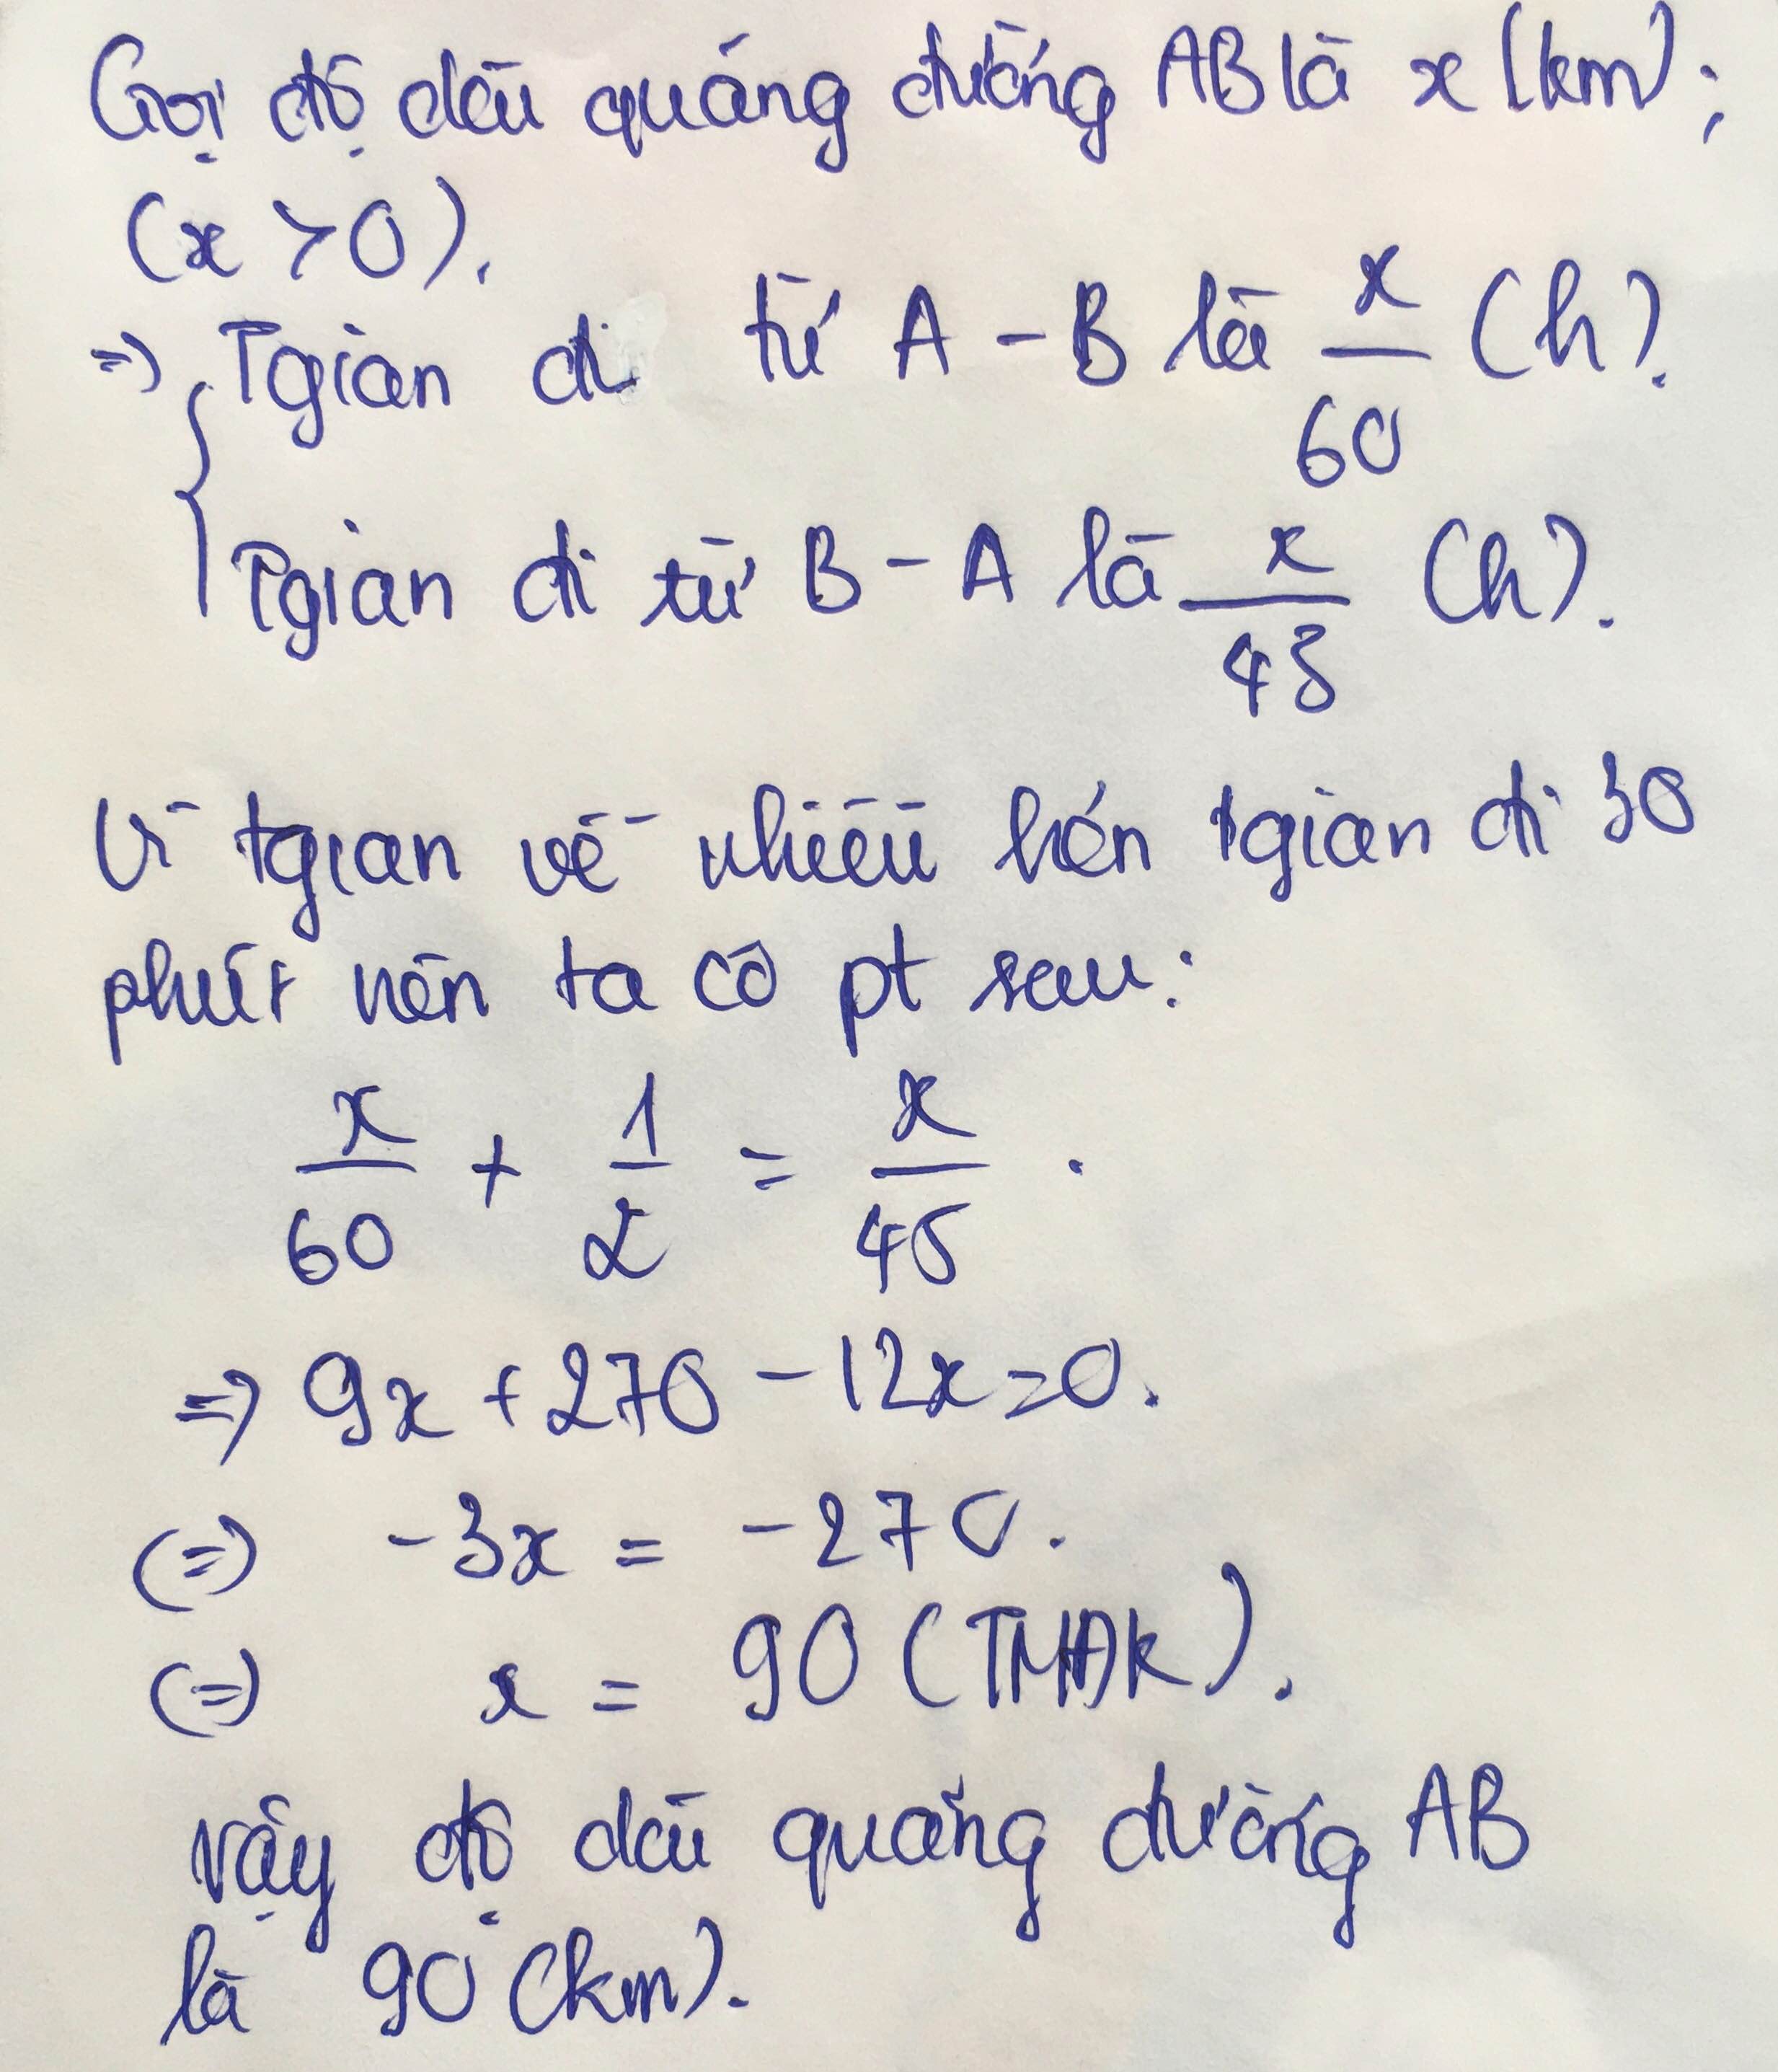 Gọi độ dài quãng đường AB là x (km);
(x > 0).
=> Tgian đi từ A - B là x/60 (h).
Tgian đi từ B - A là x/45 (h).
Vì tgian về nhiều hơn tgian đi 30
phút nên ta có pt sau:
x/60 + 1/2 = x/45.
=> 9x + 270 - 12x = 0.
(=) -3x = -270.
(=) x = 90 (TMĐK).
Vậy độ dài quãng đường AB
là 90 (km).